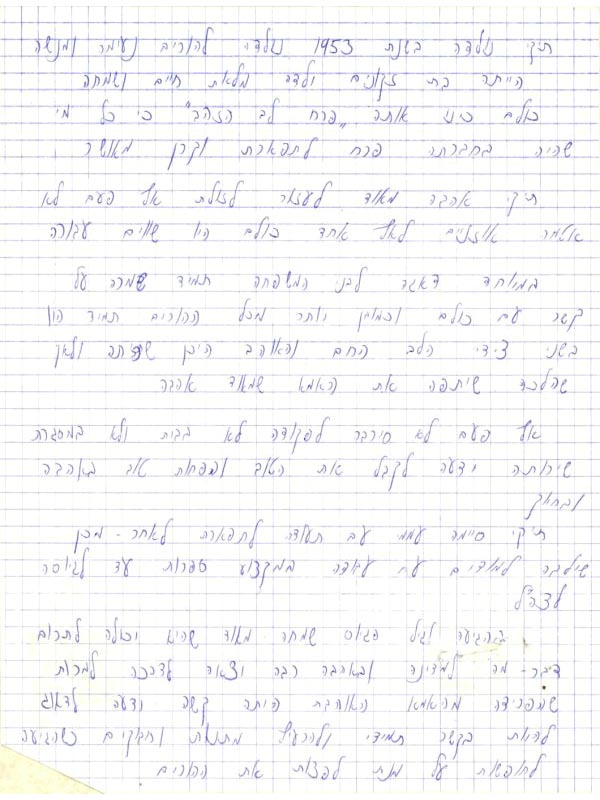 תקי נולדה בשנת 1953 נולדה להורים נעימה ומנשה
הייתה בת זקונים ילדה מלאת חיים ושמחה
כולם כינו אותה "פרח לב הזהב" כי כל מי
שהיה בחברתה פרח לתפארת וקרן מאושר
תיקי אהבה מאוד לעזור לזולת אף פעם לא
אטמה אוזניים לאף אחד כולם היו שווים עבורה
במיוחד דאגה לבני המשפחה תמיד שמרה על
קשר עם כולם וכמובן יותר מכל ההורים תמיד היו
בשני צידי הלב החם והאוהב היכן ולאן
שהלכה שיתפה את האמא שמאוד אהבה
אף פעם לא סירבה לפקודה לא בבית ולא במסגרת
שירותה ידעה לקבל את הטוב והפחות טוב באהבה
ובחיוך
תיקי סיימה עממי עם תעודה לתפארת לאחר-מכן
שילבה לימודים עם עבודה במקצוע ספרות עד לגיוסה
לצה"ל
בהגיעה לגיל גיוס שמחה מאוד שהיא יכולה לתרום
דיבר-מה למדינה ובאהבה רבה יצאה לדרכה למרות
שהפרידה מהאמא האוהבת היתה קשה ידעה לדאוג
להיות בקשר תמידי ולהרעיף מתנות וחיבוקים כשהגיעה
לחופשות על מנת לפצות את ההורים